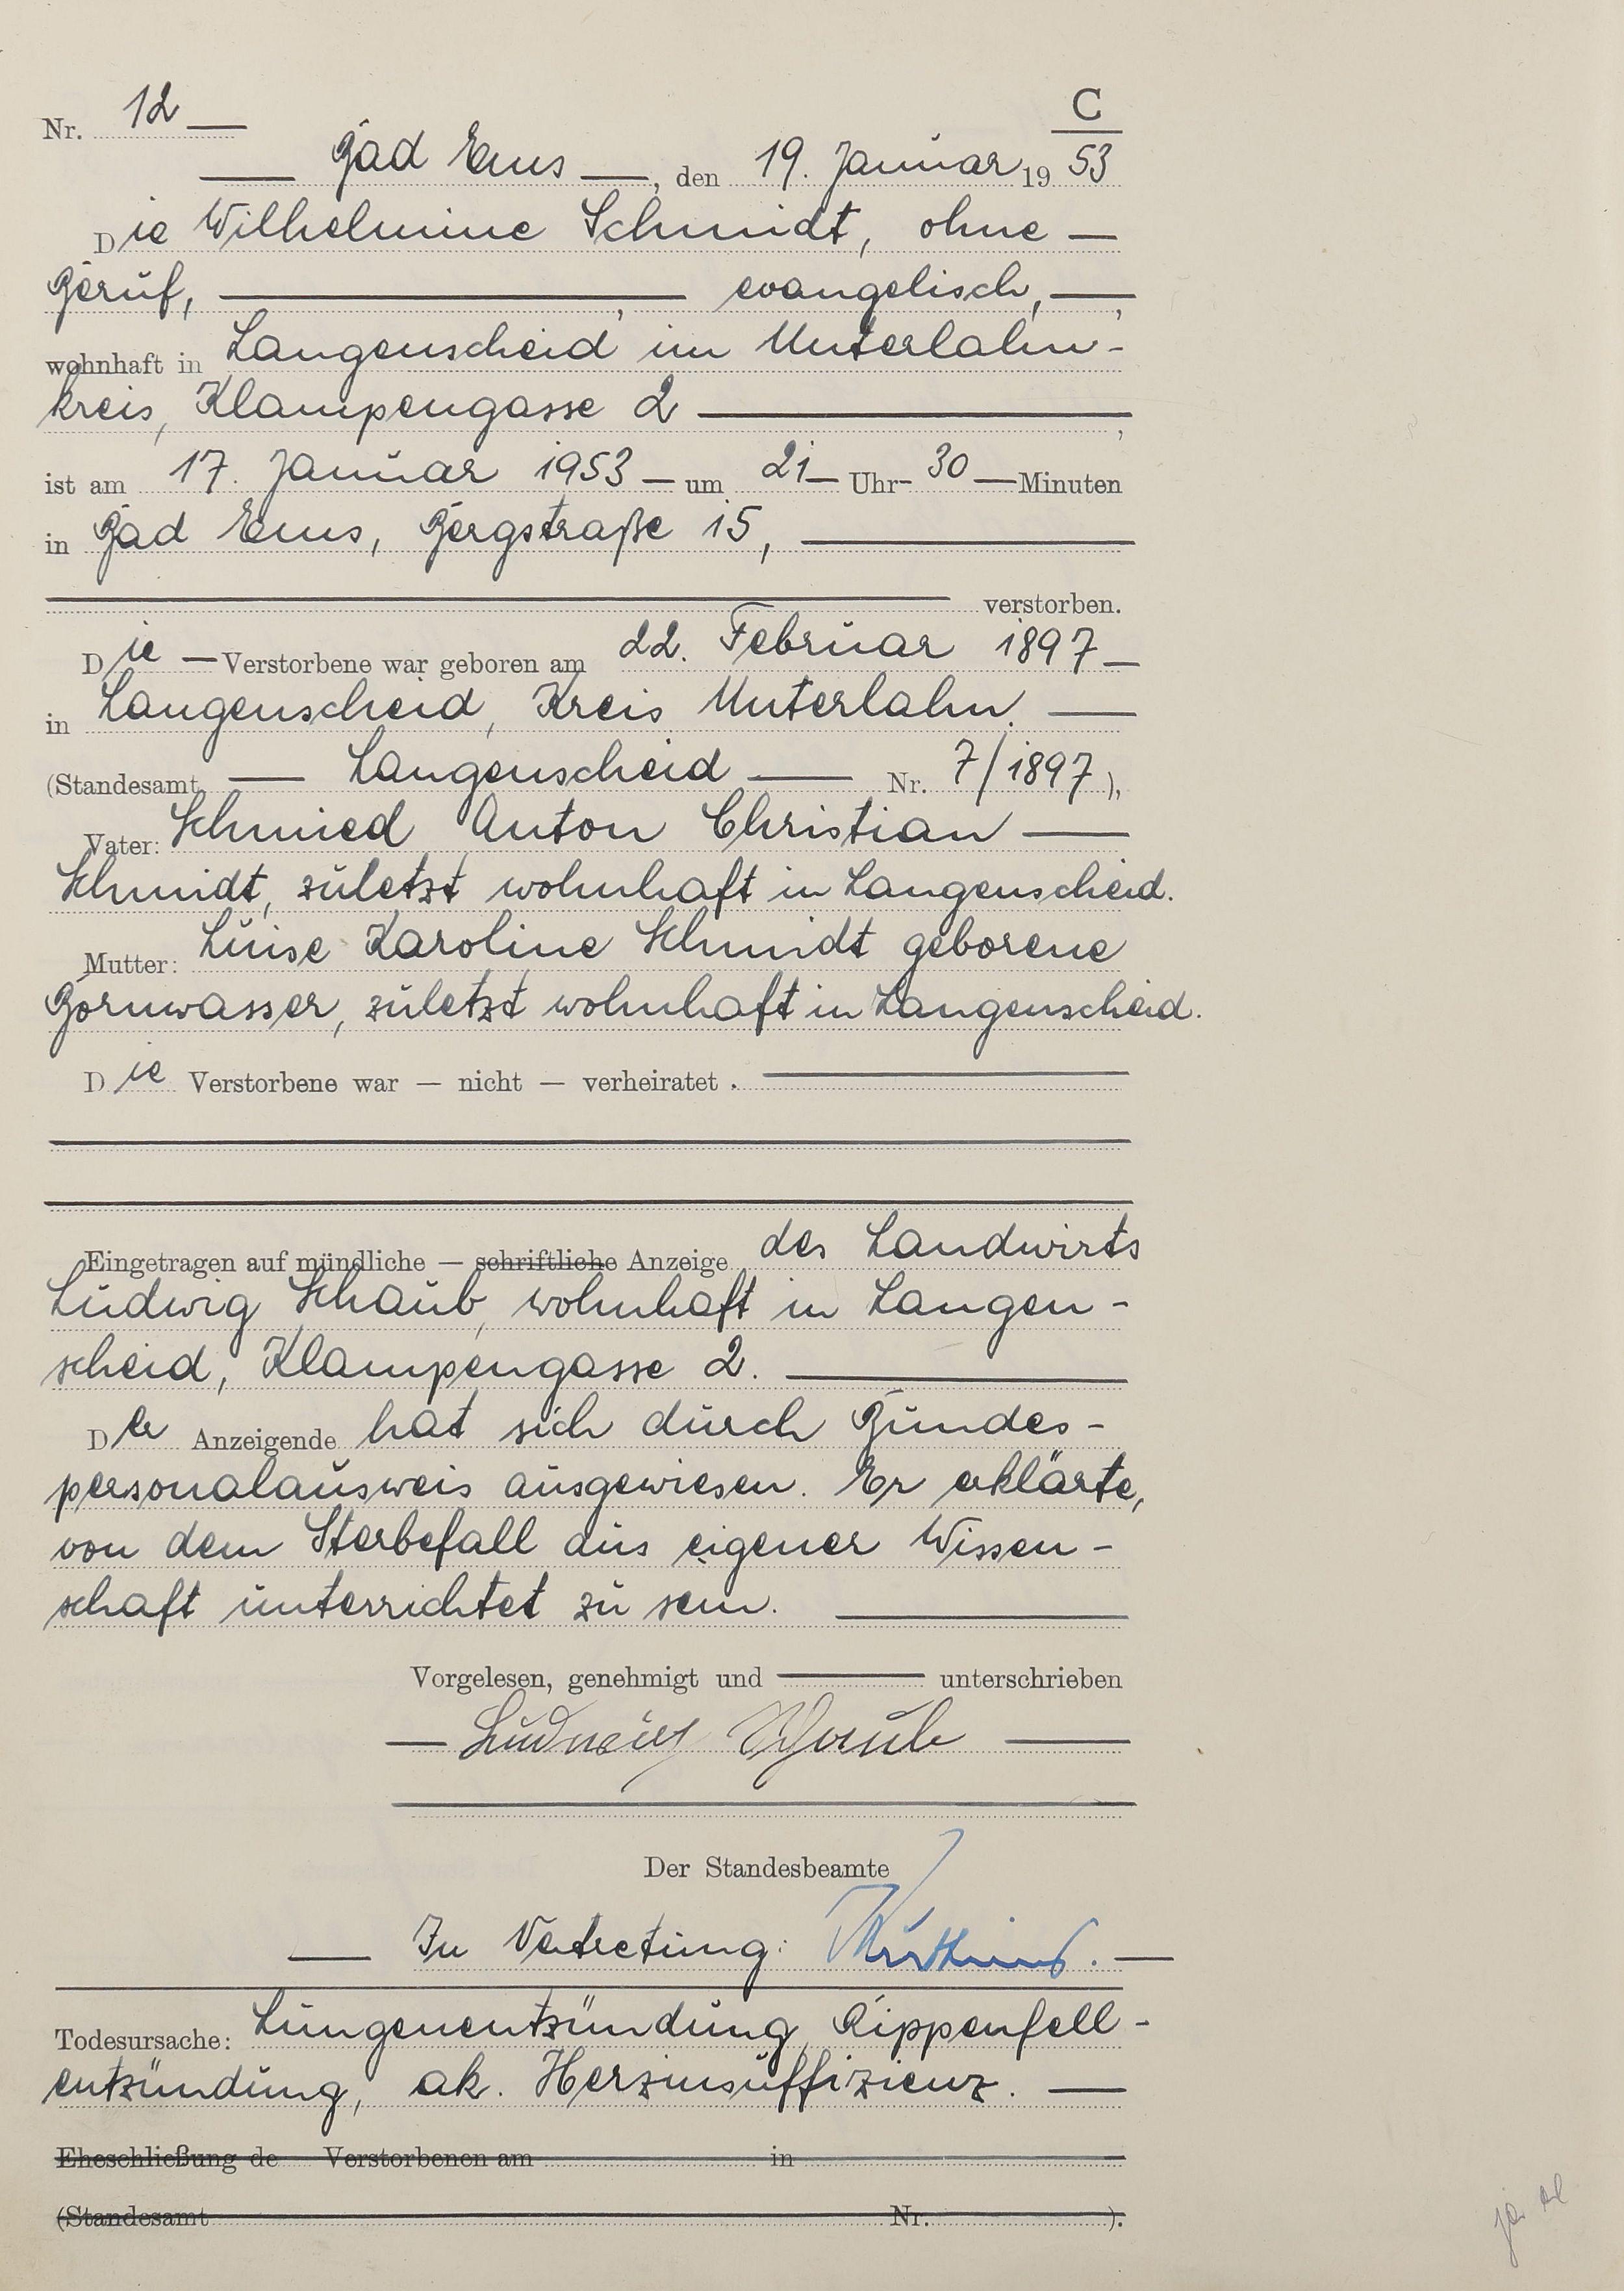 C
Nr. 12 —
— Bad Ems —, den 19. Januar 19 53
Die Wilhelmine Schmidt, ohne —
Beruf, — , evangelisch, —,
wohnhaft in Langenscheid im Unterlahn-
kreis, Klampengasse 2 — ,
ist am 17. Januar 1953 — um 21 — Uhr - 30 — Minuten
in Bad Ems, Bergstraße 15, —
— verstorben.
Die — Verstorbene war geboren am 22. Februar 1897 —
in Langenscheid, Kreis Unterlahn. —
(Standesamt — Langenscheid — Nr. 7/1897 ),
Vater: Schmied Anton Christian —
Schmidt, zuletzt wohnhaft in Langenscheid.
Mutter: Luise Karoline Schmidt geborene
Bornwasser, zuletzt wohnhaft in Langenscheid.
Die Verstorbene war — nicht — verheiratet. —
Eingetragen auf mündliche — schriftliche Anzeige des Landwirts
Ludwig Schaub, wohnhaft in Langen-
scheid, Klampengasse 2. —
Der Anzeigende hat sich durch Bundes-
personalausweis ausgewiesen. Er erklärte,
von dem Sterbefall aus eigener Wissen-
schaft unterrichtet zu sein. —
Vorgelesen, genehmigt und — unterschrieben
— Ludwig Schaub —
Der Standesbeamte
— In Vertretung: —
Todesursache: Lungenentzündung, Rippenfell-
entzündung, ak. Herzinsuffizienz. —
Eheschließung de Verstorbenen am in
(Standesamt Nr. ).